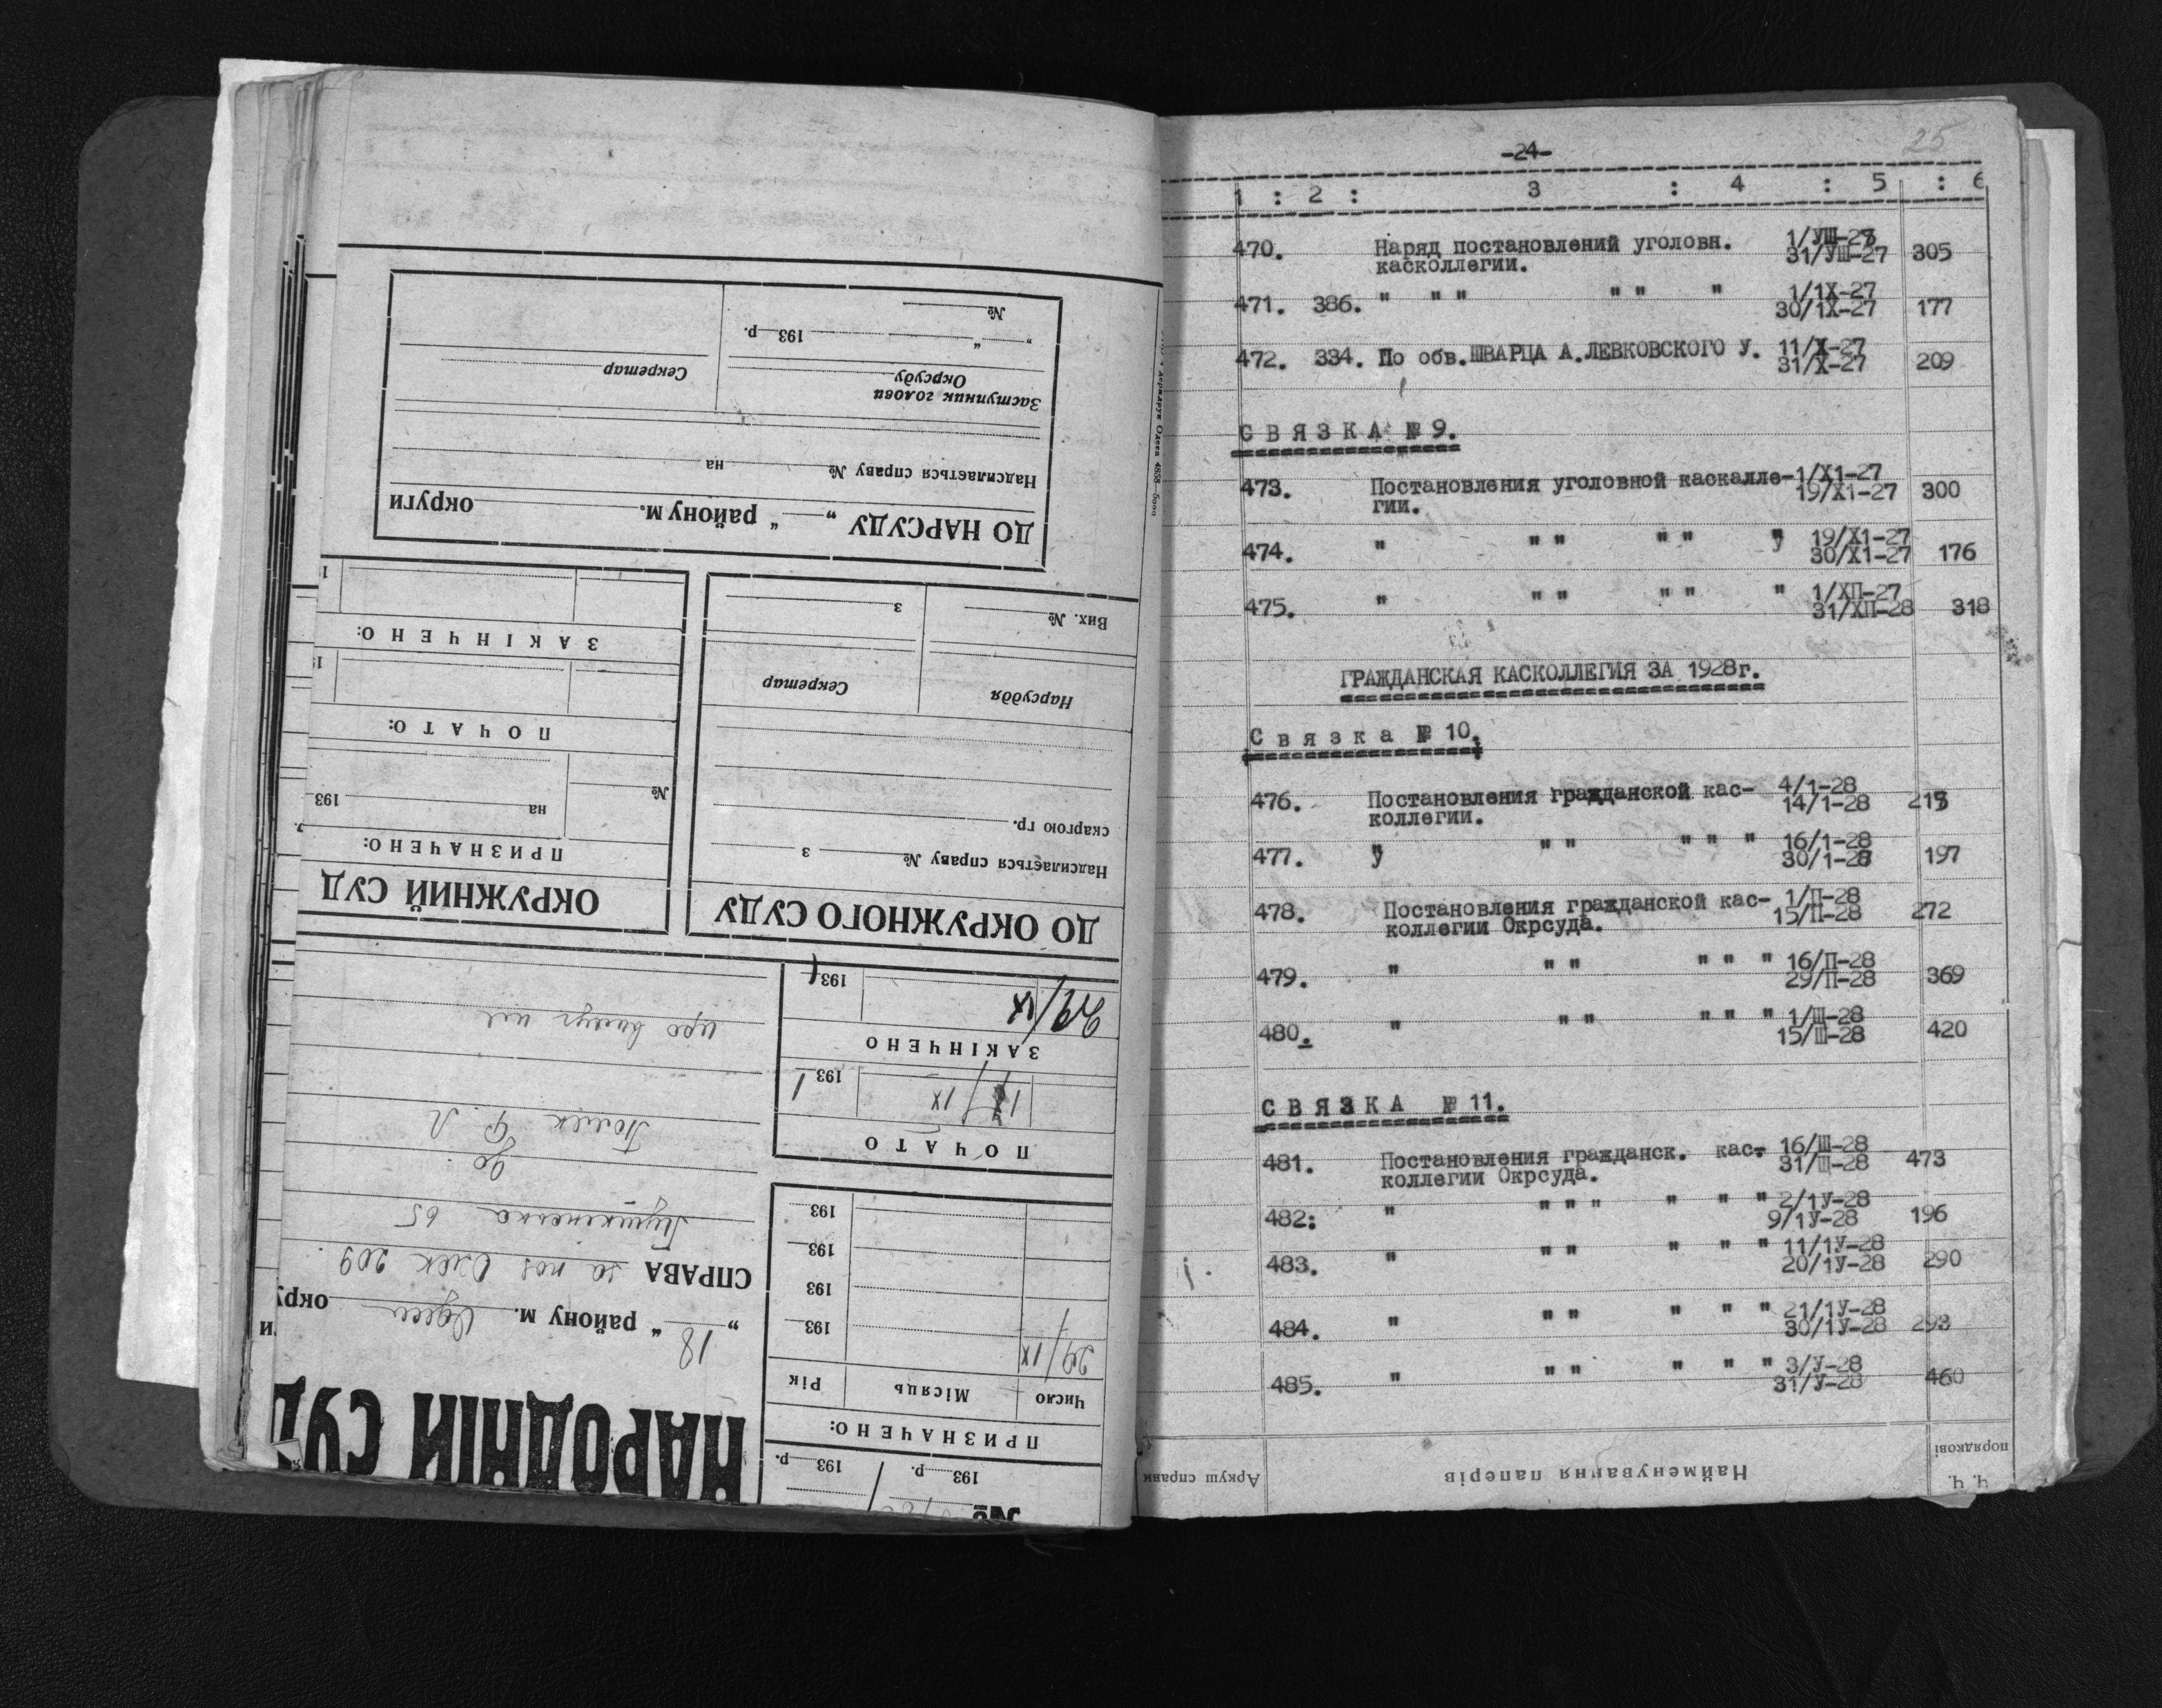 -24-
25
1 : 2 : 3 : 4 : 5 : 6
470. Наряд постановлений уголовн. 1/УШ-27
касколлегии. 31/УШ-27 305
471. 386. " " " " " " 1/1Х-27
30/1Х-27 177
472. 334. По обв. ШВАРЦА А.ЛЕВКОВСКОГО У. 11/Х-27
31/Х-27 209
С В Я З К А № 9.
473. Постановления уголовной каскалле- 1/Х1-27
гии. 19/Х1-27 300
474. " " " " " " 19/Х1-27
30/Х1-27 176
475. " " " " " " 1/ХП-27
31/ХП-28 318
ГРАЖДАНСКАЯ КАСКОЛЛЕГИЯ ЗА 1928г.
С в я з к а № 10.
476. Постановления гражданской кас- 4/1-28
коллегии. 14/1-28
477. " " " " " " 16/1-28
30/1-28 197
478. Постановления гражданской кас- 1/П-28
коллегии Окрсуда. 15/П-28 272
479. " " " " " " 16/П-28
29/П-28 369
480. " " " " " " 1/Ш-28
15/Ш-28 420
С В Я З К А № 11.
481. Постановления гражданск. кас- 16/Ш-28
коллегии Окрсуда. 31/Ш-28 473
482: " " " " " " " 2/1У-28
9/1У-28 196
483. " " " " " " 11/1У-28
20/1У-28 290
484. " " " " " " 21/1У-28
30/1У-28 293
485. " " " " " " 3/У-28
31/У-28 460
Ч. Ч. порядкові
Найменування паперів
Аркуш справи
№
193 р.
193 р.
ПРИЗНАЧЕНО:
Число Місяць Рік
29/IX 193
193
193
193
ПОЧАТО
IX 1931
ЗАКІНЧЕНО
29/IX 1931
НАРОДНІЙ СУД
" 18 " району м. Одеси окру
СПРАВА за поз 209
Пушкинська 65
до
про
ДО ОКРУЖНОГО СУДУ
Надсилається справу № з
скаргою гр.
Нарсуддя Секретар
Вих. №
з
ОКРУЖНИЙ СУД
ПРИЗНАЧЕНО:
№ на 193
ПОЧАТО:
ЗАКІНЧЕНО:
ДО НАРСУДУ " " району м. округи
Надсилається справу № на
Заступник голови
Окрсуду
Секретар
" " 193 р.
№